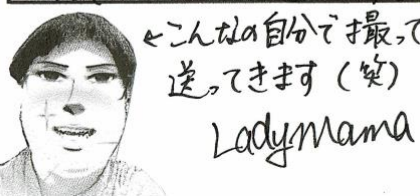 ←こんなの自分で撮って
送ってきます(笑)
Ladymama